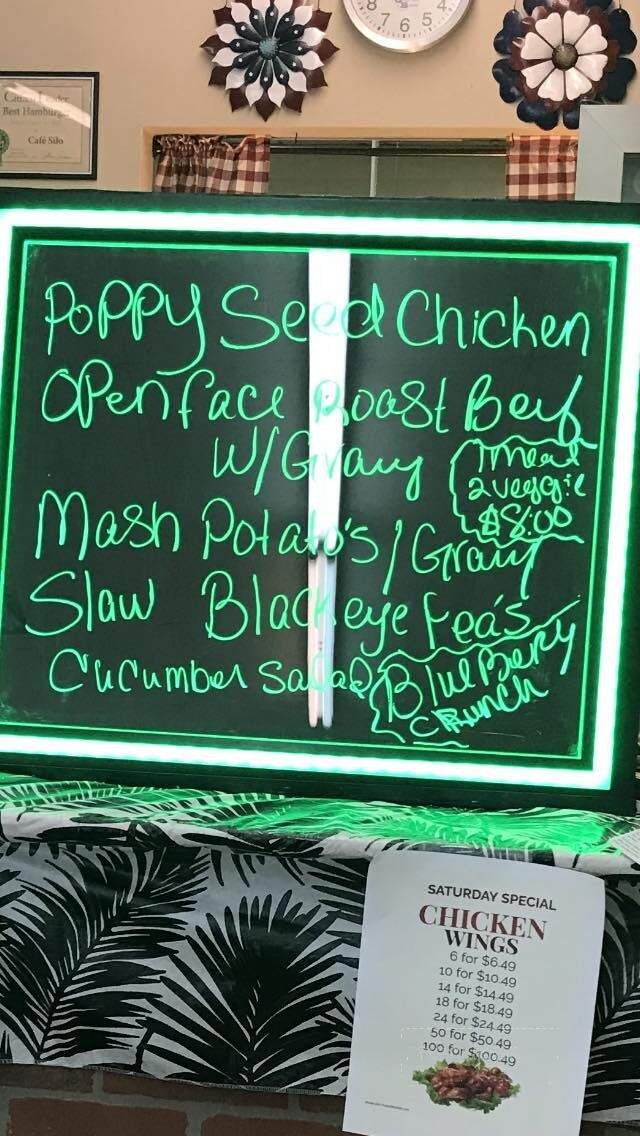 8 7 6 5 4
Best Hamburger
Café Silo
Poppy Seed Chicken
Open face Roast Beef
W/Gravy
1 meat
2 veggie
$8.00
Mash Potato's / Gravy
Slaw Blackeye Peas
Cucumber Salad
Blue Berry
Crunch
SATURDAY SPECIAL
CHICKEN
WINGS
6 for $6.49
10 for $10.49
14 for $14.49
18 for $18.49
24 for $24.49
50 for $50.49
100 for $100.49